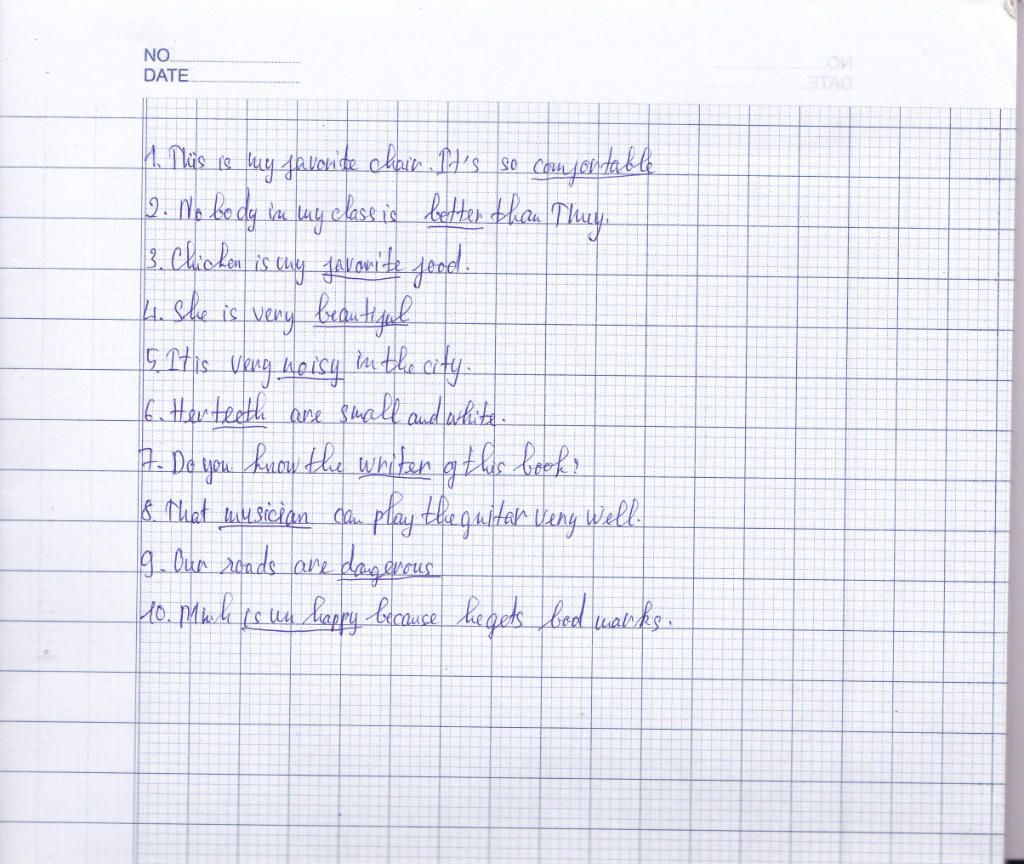 NO
DATE
1. This is my favorite chair. It's so comfortable
2. No body in my class is better than Thuy.
3. Chicken is my favorite food.
4. She is very beautiful
5. It is very noisy in the city.
6. Her teeth are small and white.
7. Do you know the writer of this book?
8. That musician can play the guitar very well.
9. Our roads are dangerous
10. Minh is un happy because he gets bad marks.